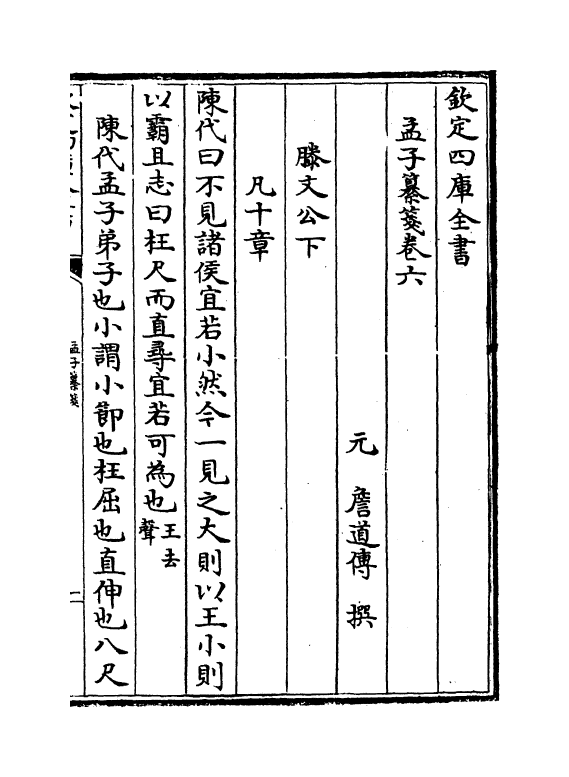 欽定四庫全書
孟子纂箋卷六
元 詹道傳 撰
滕文公下
凡十章
陳代曰不見諸侯宜若小然今一見之大則以王小則
以霸且志曰枉尺而直尋宜若可為也王去聲
陳代孟子弟子也小謂小節也枉屈也直伸也八尺
孟子纂箋